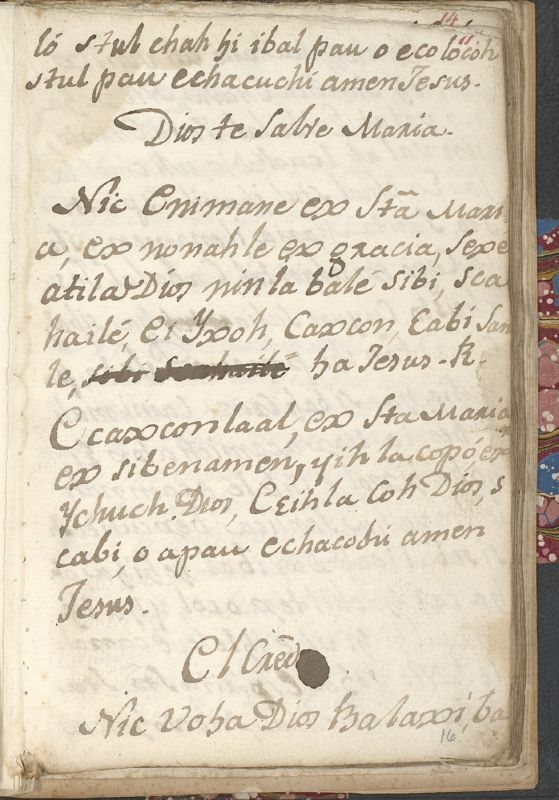 14
ló stul chah hi ibal pau o ecolocoh
stul pau echacuchi amen Jesus.
Dios te Salve Maria.
Nic Cnimane ex Stã Mari
a, ex nonahle ex gracia, sexe
atila Dios nin la balé sibi, sca
hailé, Ei Yxoh, Caxcon, Eabi San
le, ha Jesus - R.
Ccaxconlaal, ex Sta Maria
ex sibenamen, yih la copó ex
Ychuch Dios, Cеihla Coh Dios, s
cabi, o apau echacohi amen
Jesus.
El Cred
Nic Voha Dios Balaxi, ba
16